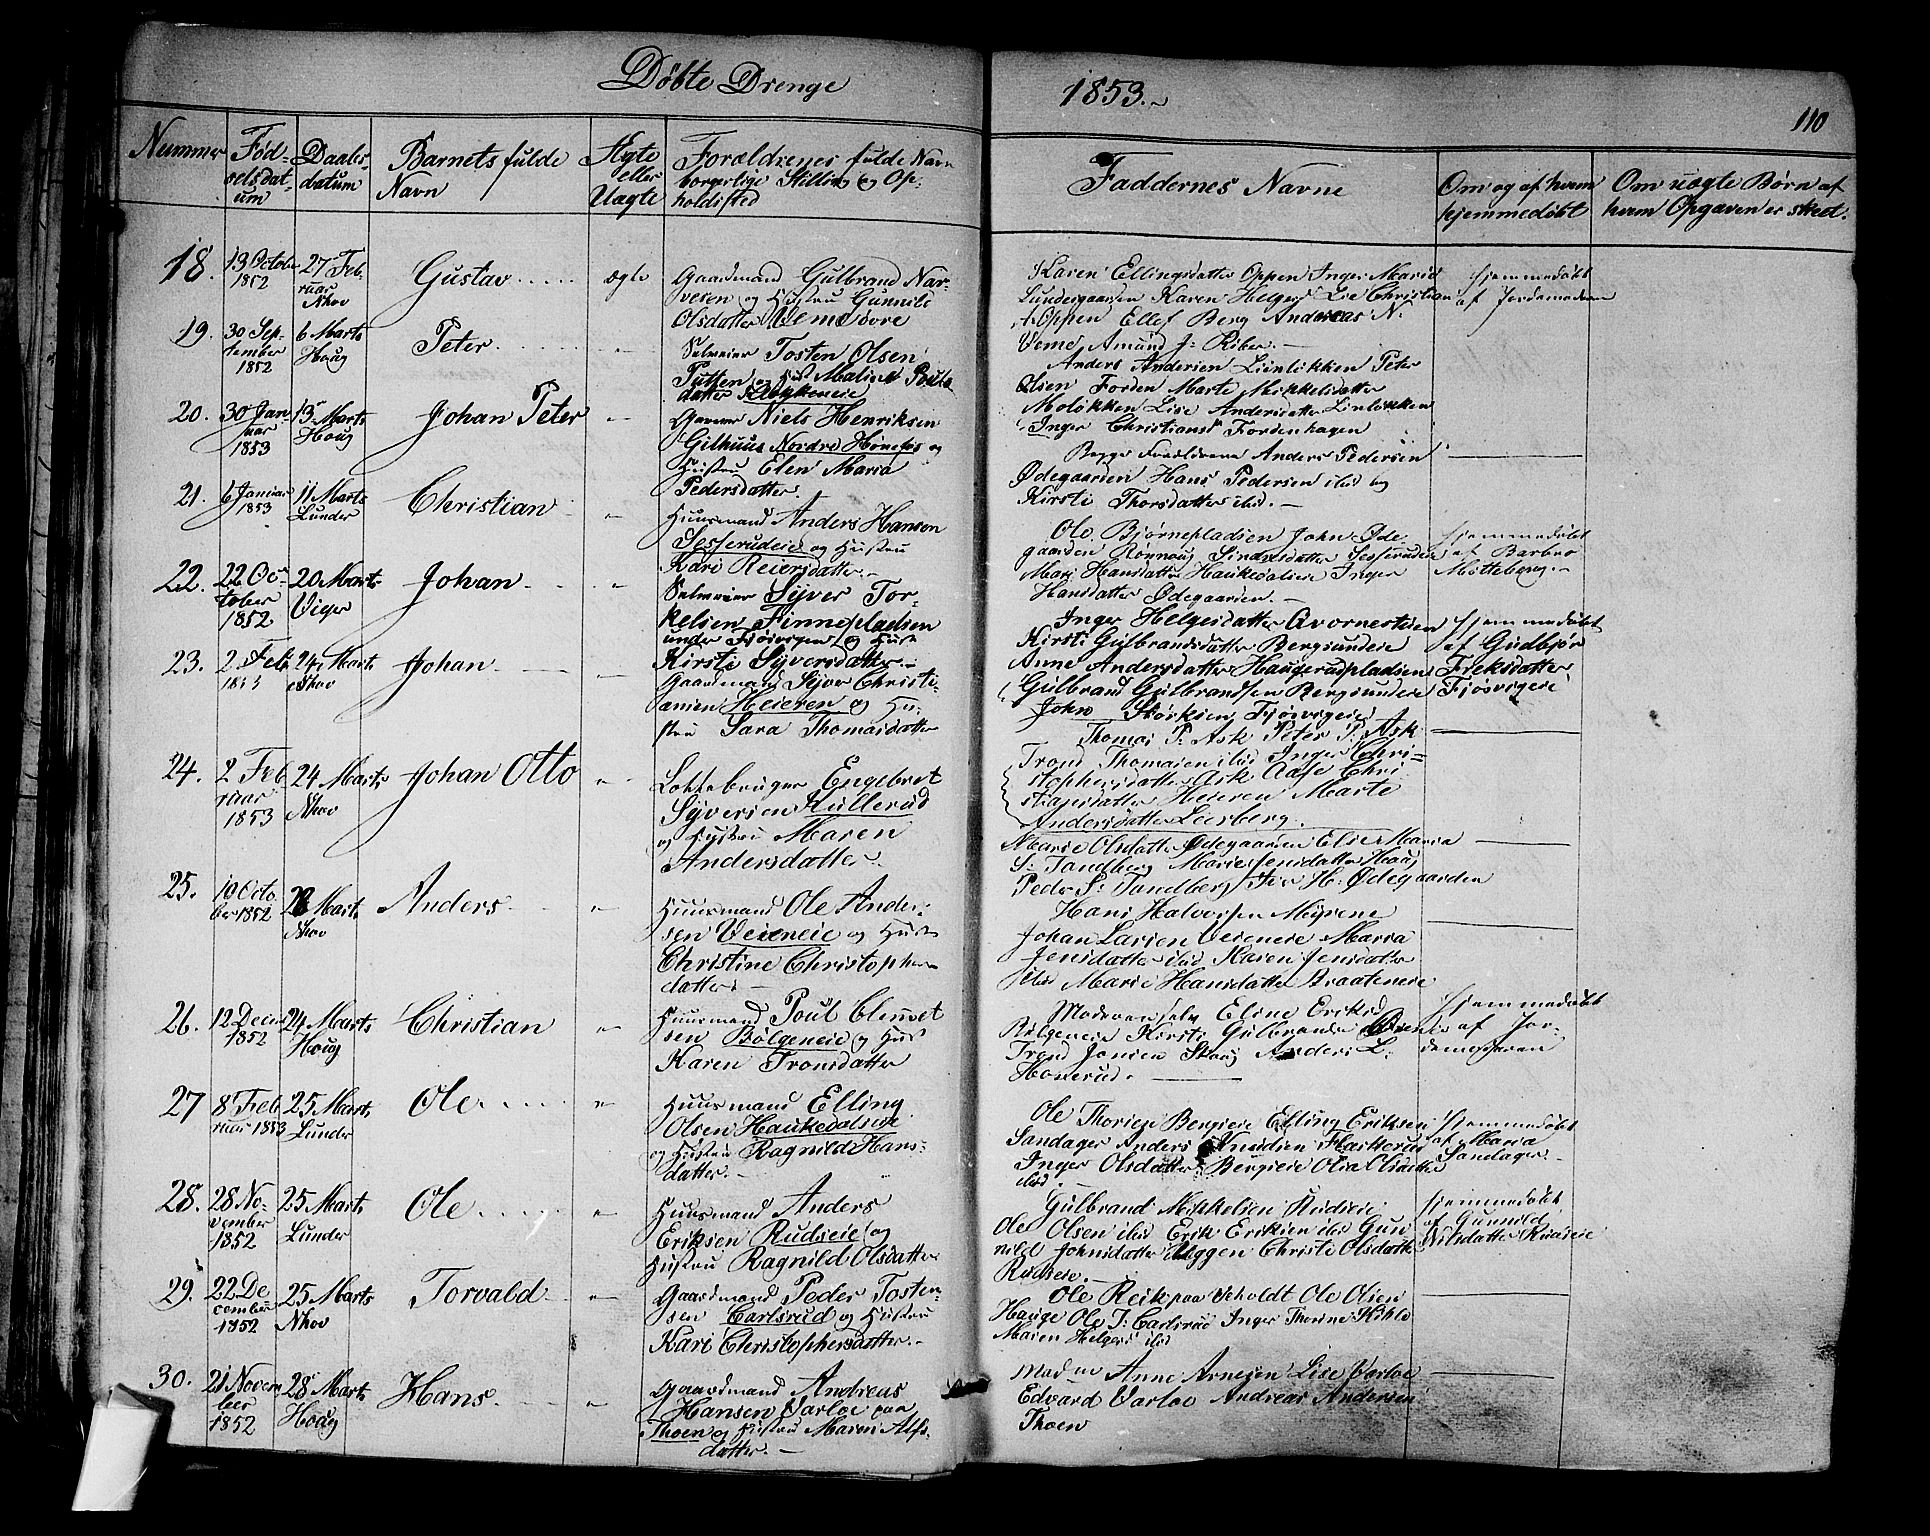 Döbte Drenge
1853.
110
Nummer
Fød-
selsdat-
um
Daabs-
datum
Barnets fulde
Navn
Ægte
eller
Uægte
Forældrenes fulde Navn
borgerlige Stilling og Op-
holdssted
Faddernes Navne
Om og af hvem
hjemmedøbt
Om uægte Børn af
hvem Opgaven er skeet.
18.
13 Octobr
1852
27 Feb-
ruar
Nhov
Gustav
ægte
Gaardmand Gulbrand Nar-
vesen og Hustru Gunnild
Olsdatter Veme øvre
Karen Ellingsdatter Oppen Inger Marie
Lundesgaarden Karen Helgesd Lise Christian
Oppen Ellef Berg Andreas N.
Veme Amund J. Riber. —
Hjemmedøbt
af Jordemoderen
19.
30 Sep-
tember
1852
6 Marts
Houg
Peter
"
Selveier Tosten Olsen
Putten og Hust Malene Pouls
datter Klækkeneie
Anders Andersen Lienløkken Peter
Olsen Forden Marte Mikkelsdatter
Moløkken Lise Andersdatter Linløkken
Inger Christiansd Fordenhagen
20.
30 Jan-
uar
1853
13 Marts
Houg
Johan Peter
"
Garver Niels Henriksen
Gilhuus Nordre Hønefos og
Hustru Elen Maria
Pedersdatter
Begge Forældrene Anders Pedersen
Ødegaarden Hans Pedersen ibid og
Kirsti Thorsdatter ibid. —
21.
6 Januar
1853
11 Marts
Lunder
Christian
"
Huusmand Anders Hansen
Sesserudeie og Hustru
Kari Reiersdatter. —
Ole Bjørnepladsen John Øde
gaarden Rønnoug Sindresdatter Sesserudeie
Mari Hansdatter Haukedalseie Inger
Hansdatter Ødegaarden. —
Hjemmedøbt
af Barbro
Møtteberg. —
22.
22 Oc-
tober
1852
20 Marts
Viger
Johan
"
Selveier Syver Tor-
kelsen Finnepladsen
under Fjøsvigen og Hust
Kirsti Syversdatter —
Inger Helgesdatter Qvornestuen
Kirsti Gulbrandsdatter Bergsundeie
Anne Andersdatter Haugerudpladsen
Gulbrand Gulbrandsen Bergsundeie
John Størksen Fjøsvigeie
Hjemmedøbt
af Gudbjør
Freksdatter
Fjøsvigeie
23.
2 Feb
1853
24 Marts
Nhov
Johan
"
Gaardmand Syver Christi-
ansen Heieren og Hu-
stru Sara Thomasdatter
Thomas P. Ask Peter P. Ask
Trond Thomasen ibid Inger Chri-
stophersdatter Ask Aase Chri
stiansdatter Heieren Marte
Andersdatter Leerberg.
24.
2 Feb
ruar
1853
24 Marts
Nhov
Johan Otto
"
Løkkebruger Engebret
Syversen Hullerud
og Hustru Maren
Andersdatter
Marie Olsdatter Ødegaarden Elise Maria
S. Tandberg Marie Jensdatter Houg
Peder S. Tandberg Iver H. Ødegaarden
25.
10 Octo
ber 1852
28 Marts
Nhov
Anders
"
Huusmand Ole Ander-
sen Veieneie og Hustr
Christine Christophers
datter. —
Hans Halvorsen Myrene
Johan Larsen Veieneie Maria
Jensdatter ibid Karen Jensdatter
ibid Marie Hansdatter Braateneie
26.
12 Decem
1852
24 Marts
Houg
Christian
"
Huusmand Poul Clemmet
sen Bølgeneie og Hust
Karen Tronsdatter
Moderen selv Eline Eriksd
Bølgeneie Kirsti Gulbrandsd
Trond Jonsen Skoug Anders L.
Honerud.
Hjemmedøbt
af Jor-
demoderen
27
8 Feb
ruar 1853
25 Marts
Lunder
Ole
"
Huusmand Elling
Olsen Haukedalseie
og Hustru Ragnild Hans-
datter. —
Ole Thorsen Bergseie Elling Eriksen
Sandager Anders Knudsen Flaskerud
Inger Olsdatter Bergseie Olia Olsdatter
ibid. —
Hjemmedøbt
af Maria
Sandager. —
28.
28 No-
vember
1852
25 Marts
Lunder
Ole
"
Huusmand Anders
Eriksen Rudseie og
Hustru Ragnild Olsdatter
Gulbrand Mikkelsen Rudseie
Ole Olsen ibid Erik Eriksen ibid Gun
nild Johnsdatter Uggen Christi Olsdatter
Rudseie. —
Hjemmedøbt
af Gunnild
Nilsdatter Rudseie
29.
22 De
cember
1852
25 Marts
Nhov
Torvald
"
Gaardmand Peder Tosten-
sen Carlsrud og Hustru
Kari Christophersdatter. —
Ole Reik paa Veholdt Ole Olsen
Hauge Ole T. Carlsrud Inger Thorine Kihle
Maren Helgesd ibid
30.
21 Novem
ber
1852
28 Marts
Houg
Hans
"
Gaardmand Andreas
Hansen Varloe paa
Thoen og Hustru Maren Alfs-
datter. —
Mad me Anne Arnesen Lise Varloe
Edvard Varloe Andreas Andersen
Thoen